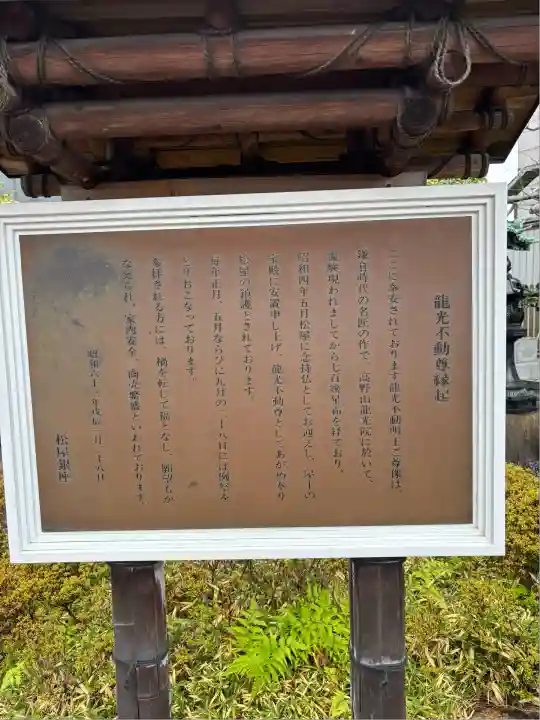 龍光不動尊縁起
ここに奉安されております龍光不動明王ご尊像は、
鎌倉時代の名匠の作で、高野山龍光院に於いて、
霊験現われましてから七百幾星霜を経ており、
昭和四年五月松屋に念持仏としてお迎えし、屋上の
宝殿に安置申し上げ、龍光不動尊としてあがめ奉り
松屋の鎮護とされております。
毎年正月、五月ならびに九月の二十八日には例祭を
とりおこなっております。
参拝される方には、禍を転じて福となし、願望もか
なえられ、家内安全、商売繁盛といわれております。
昭和六十三年戊辰 月二十八日
松屋銀座